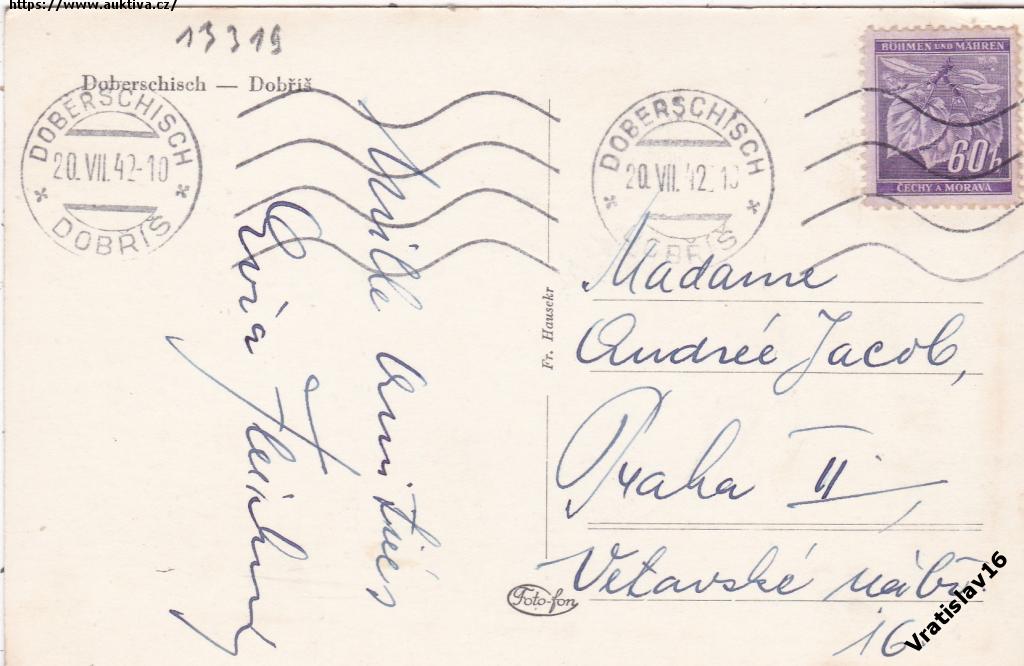 https://www.auktiva.cz/
13319
Doberschisch — Dobříš
DOBERSCHISCH
20.VII.42-10
DOBŘÍŠ
DOBERSCHISCH
20.VII.42
DOBŘÍŠ
BÖHMEN UND MÄHREN
60h
ČECHY A MORAVA
Mille Amitiés
Fr. Hausekr
Foto-fon
Madame
Andrée Jacob,
Praha II,
Vltavské nábř
16
Vratislav16